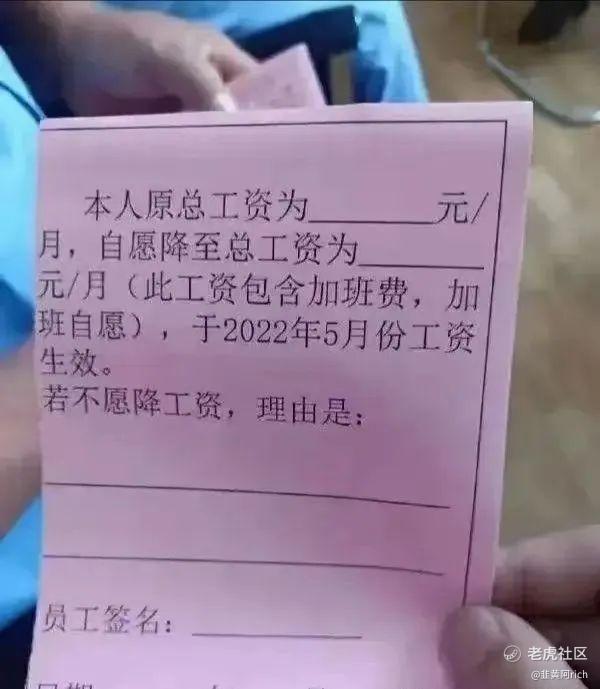 本人原总工资为_______元/
月，自愿降至总工资为_______
元/月（此工资包含加班费，加
班自愿），于2022年5月份工资
生效。
若不愿降工资，理由是：
员工签名：
老虎社区
@韭黄阿rich